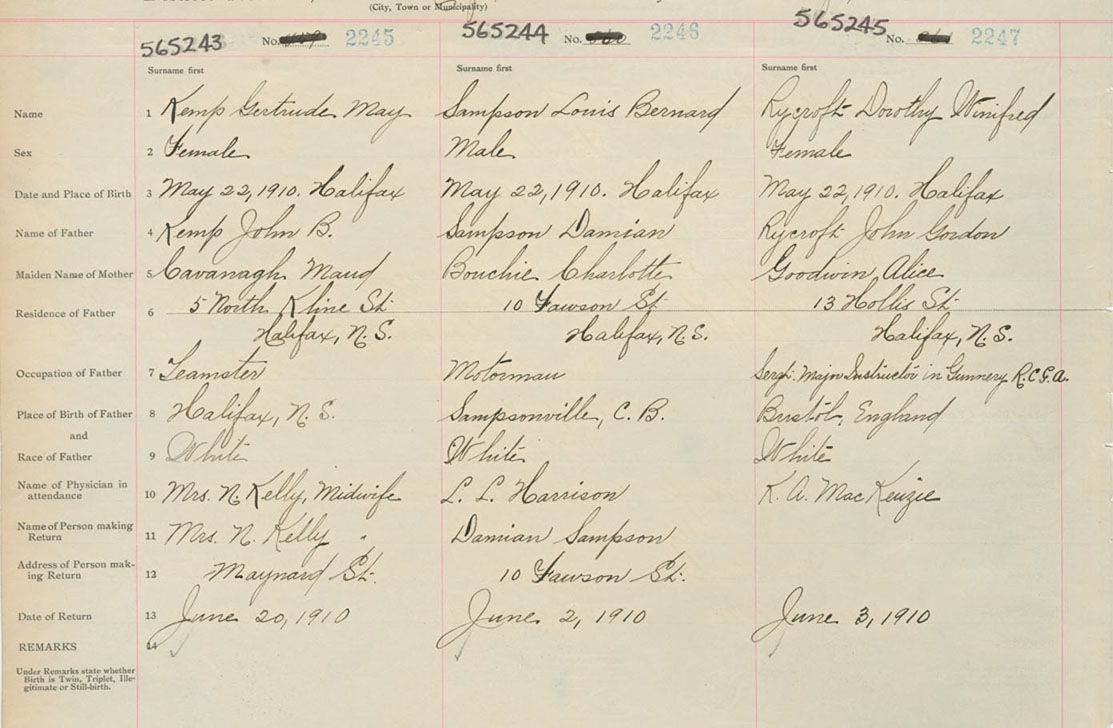 (City, Town or Municipality)
565243 No. 2245 565244 No. 2246 565245 No. 2247
Surname first Surname first Surname first
Name 1 Kemp Gertrude May Sampson Louis Bernard Rycroft Dorothy Winifred
Sex 2 Female Male Female
Date and Place of Birth 3 May 22, 1910. Halifax May 22, 1910. Halifax May 22, 1910. Halifax
Name of Father 4 Kemp John B. Sampson Damian Rycroft John Gordon
Maiden Name of Mother 5 Cavanagh Maud Bouchie Charlotte Goodwin, Alice
Residence of Father 6 5 North Kline St. 10 Fawson St. 13 Hollis St.
Halifax, N.S. Halifax, N.S. Halifax, N.S.
Occupation of Father 7 Teamster Motorman Sergt. Major Instructor in Gunnery R.C.G.A.
Place of Birth of Father 8 Halifax, N.S. Sampsonville, C.B. Bristol, England
and
Race of Father 9 White White White
Name of Physician in
attendance 10 Mrs. N. Kelly, Midwife L. L. Harrison K. A. MacKenzie
Name of Person making
Return 11 Mrs. N. Kelly " Damian Sampson
Address of Person mak-
ing Return 12 Maynard St. 10 Fawson St.
Date of Return 13 June 20, 1910 June 2, 1910 June 3, 1910
REMARKS 14
Under Remarks state whether
Birth is Twin, Triplet, Ille-
gitimate or Still-birth.